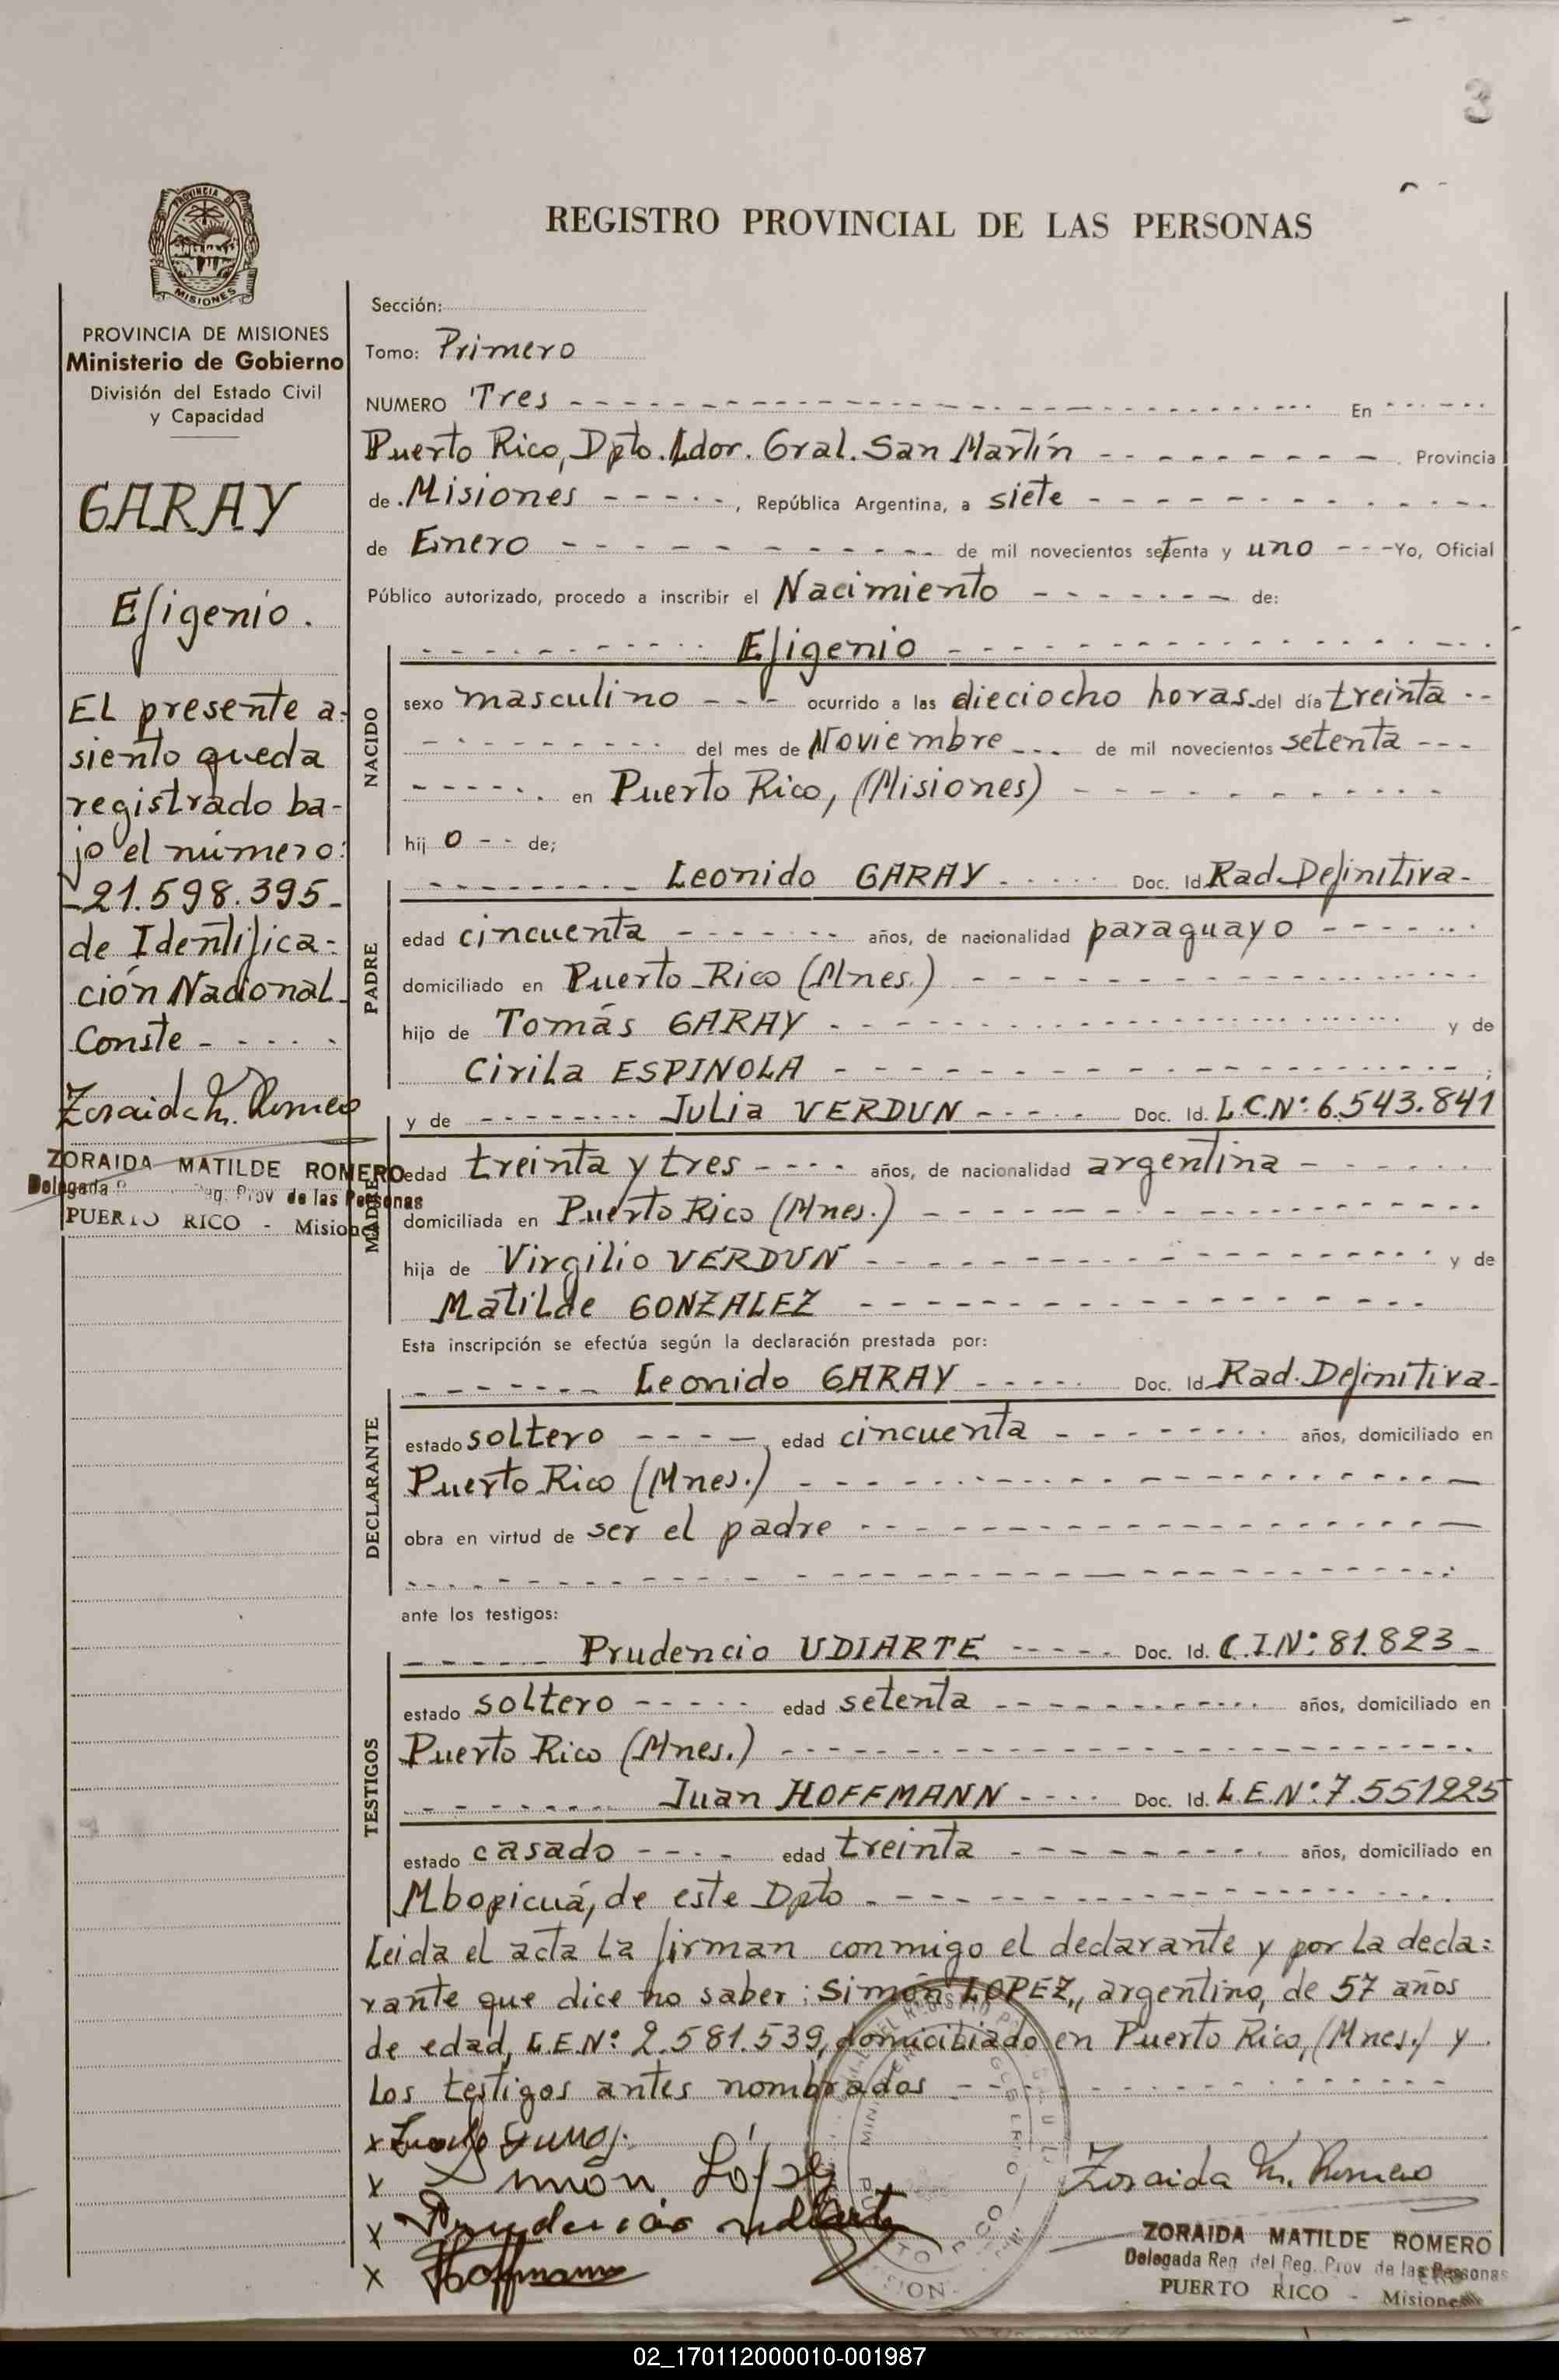 3
REGISTRO PROVINCIAL DE LAS PERSONAS
PROVINCIA DE
MISIONES
PROVINCIA DE MISIONES
Ministerio de Gobierno
División del Estado Civil
y Capacidad
GARAY
Efigenio.
EL presente a-
siento queda
registrado ba-
jo el número:
-21.598.395-
de Identifica-
ción Nacional
Conste - - - - -
Zoraida M. Romero
ZORAIDA MATILDE ROMERO
Delegada Reg. Prov de las Personas
PUERTO RICO - Misiones
Sección:
Tomo: Primero
NUMERO Tres - - - En - - -
Puerto Rico, Dpto. Ldor. Gral. San Martín - - - Provincia
de Misiones - - - , República Argentina, a siete - - -
de Enero - - - de mil novecientos setenta y uno - - - Yo, Oficial
Público autorizado, procedo a inscribir el Nacimiento - - - de:
NACIDO
- - - Efigenio - - -
sexo masculino - - - ocurrido a las dieciocho horas del día treinta - -
- - - del mes de Noviembre - - - de mil novecientos setenta - - -
- - - en Puerto Rico, (Misiones) - - -
hij o - - de;
PADRE
- - - Leonido GARAY - - - Doc. Id Rad. Definitiva-
edad cincuenta - - - años, de nacionalidad paraguayo - - -
domiciliado en Puerto Rico (Mnes.) - - -
hijo de Tomás GARAY - - - y de
Cirila ESPINOLA - - - ;
MADRE
y de - - - Julia VERDUN - - - Doc. Id. L.C.Nº: 6.543.841
edad treinta y tres - - - años, de nacionalidad argentina - - -
domiciliada en Puerto Rico (Mnes.) - - -
hija de Virgilio VERDUN - - - y de
Matilde GONZALEZ - - -
Esta inscripción se efectúa según la declaración prestada por:
DECLARANTE
- - - Leonido GARAY - - - Doc. Id Rad. Definitiva-
estado soltero - - - , edad cincuenta - - - años, domiciliado en
Puerto Rico (Mnes.) - - -
obra en virtud de ser el padre - - -
ante los testigos:
TESTIGOS
- - - Prudencio UDIARTE - - - Doc. Id. C.I.Nº: 81.823-
estado soltero - - - edad setenta - - - años, domiciliado en
Puerto Rico (Mnes.) - - -
- - - Juan HOFFMANN - - - Doc. Id. L.E.Nº: 7.551225
estado casado - - - edad treinta - - - años, domiciliado en
Mbopicuá, de este Dpto - - -
Leida el acta la firman conmigo el declarante y por la decla:
rante que dice no saber: Simón LOPEZ, argentino, de 57 años
de edad, L.E.Nº: 2.581.539, domiciliado en Puerto Rico, (Mnes.) y
los testigos antes nombrados - - -
x
x Simón López
x Prudencio udiarte
x Hoffmann
Zoraida M. Romero
ZORAIDA MATILDE ROMERO
Delegada Reg del Reg. Prov de las Personas
PUERTO RICO - Misiones
02_170112000010-001987